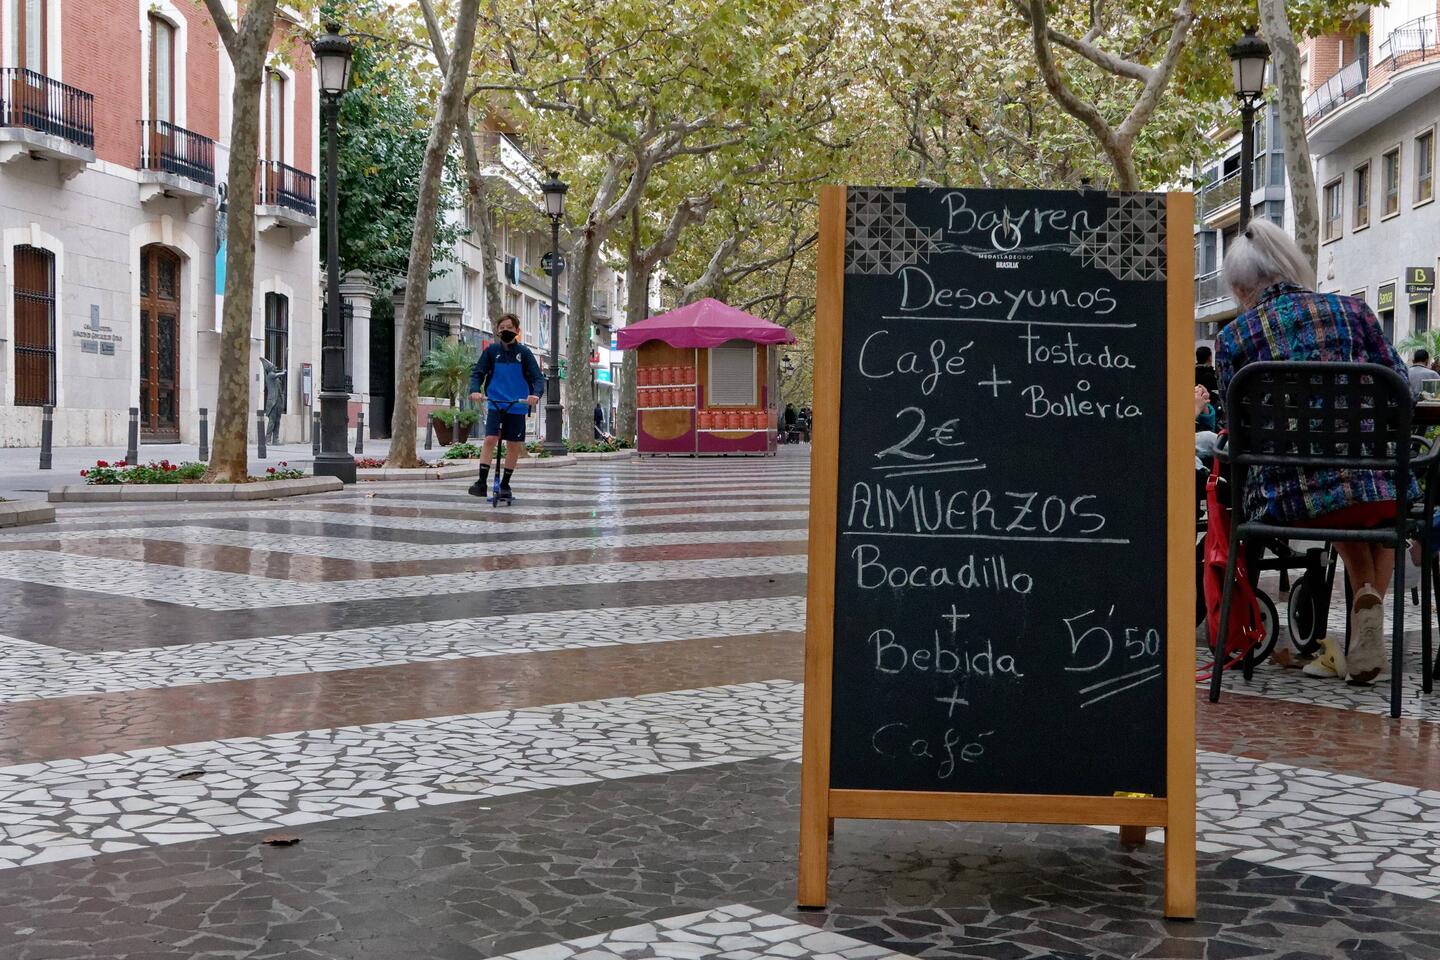 Bayren
MEDALLA DE ORO
BRASILIA
Desayunos
Café + tostada
o
Bolleria
2€
AlMUERZOS
Bocadillo
+
Bebida
5'50
+
Café